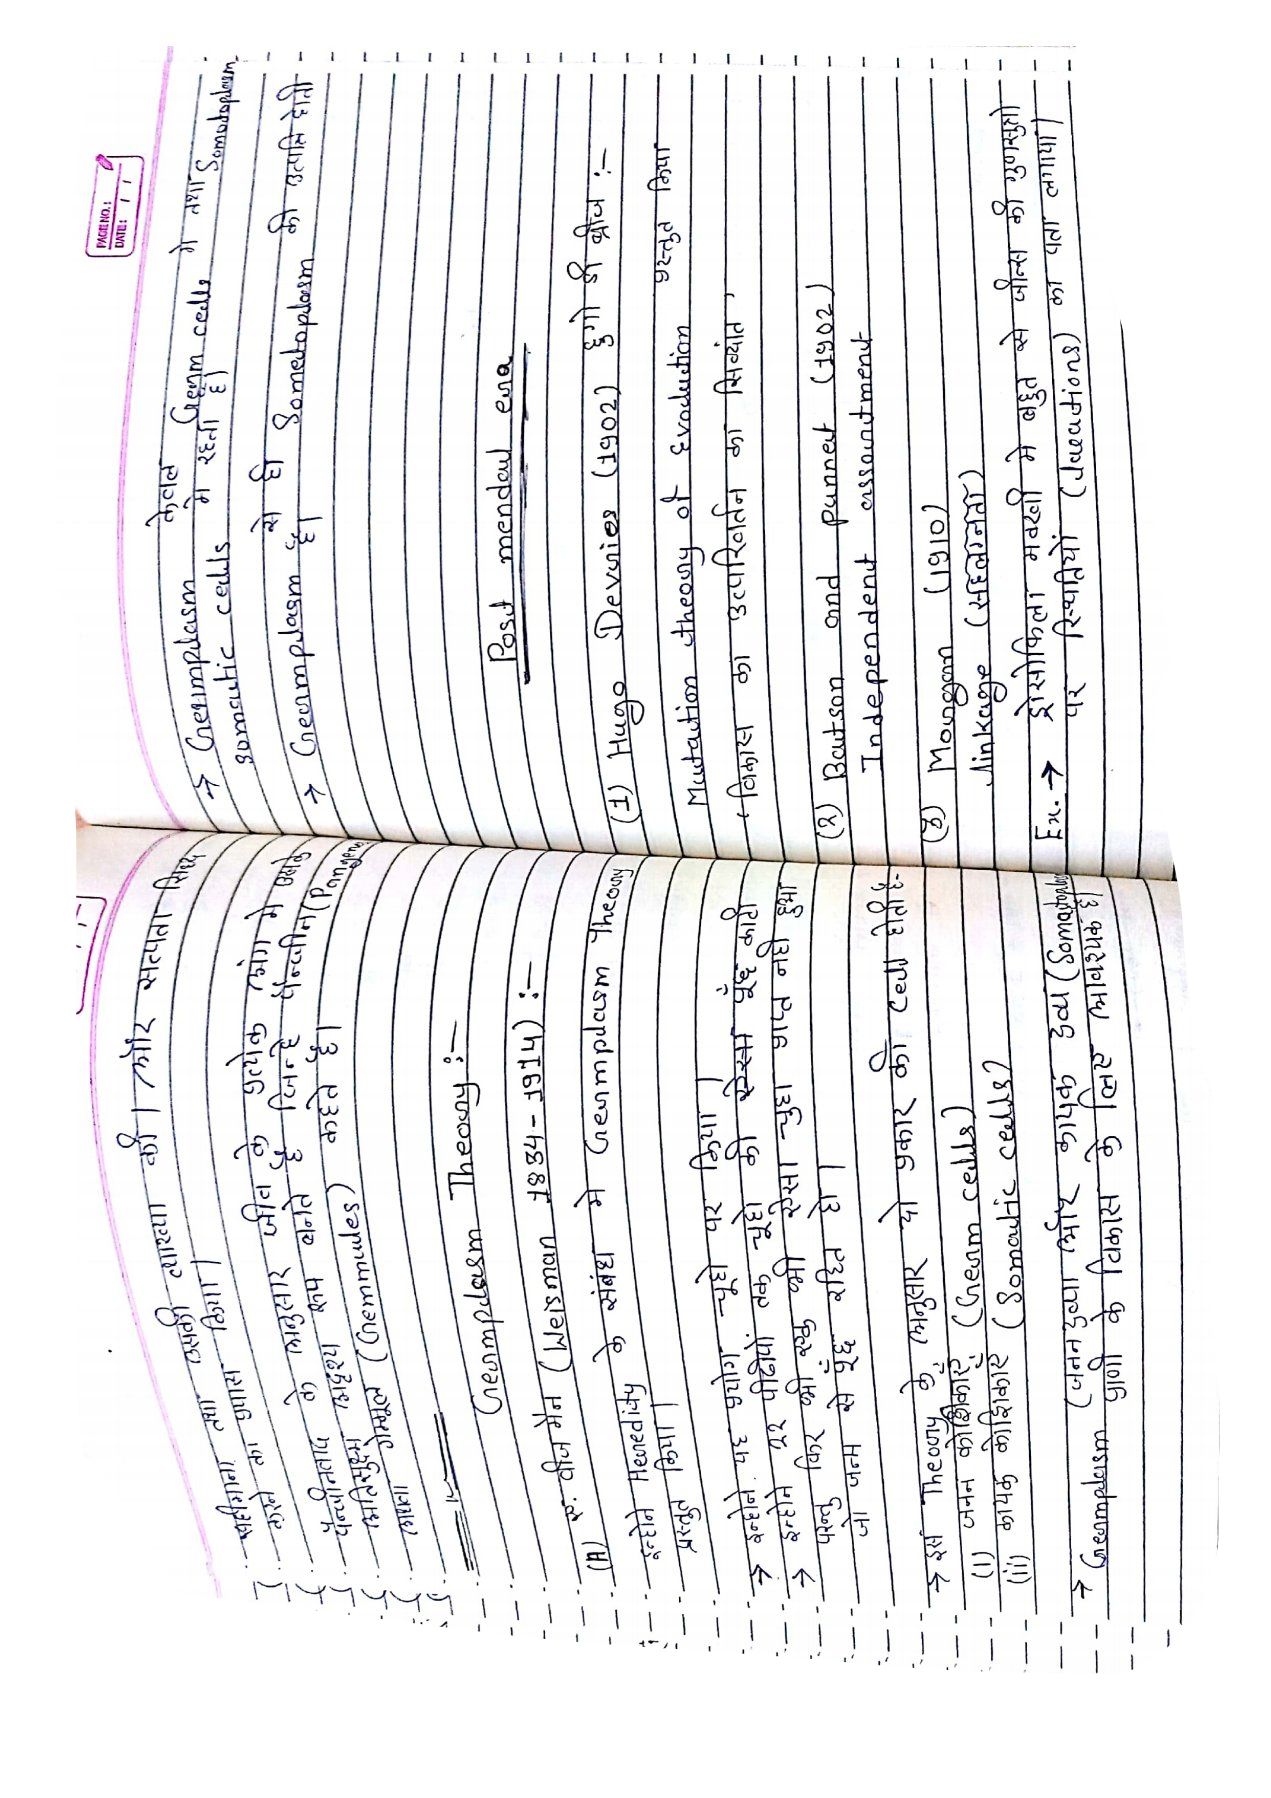 पहचाना तथा उसकी व्याख्या की। और सत्यता सिद्ध
करने का प्रयास किया।
पैन्जीनवाद के अनुसार जीव के प्रत्येक अंग में उसके
अतिसूक्ष्म अदृश्य रूप बनते है जिन्हे पैन्जीन (Pangene)
अथवा गेम्मूल (Gemmules) कहते है।
Germplasm Theory :-
(A) ए. वीज मैन (Weisman 1834-1914) :-
इन्होने Heredity के संबंध मे Germplasm Theory
प्रस्तुत किया।
→ इन्होने यह प्रयोग चूहो पर किया।
→ इन्होने 22 पीढीयो तक चूहो की पूँछ काटी
परन्तु फिर भी एक भी ऐसा चुहा प्राप्त नही हुआ
जो जन्म से पूँछ रहित हो।
→ इस Theory के अनुसार दो प्रकार की cell होती है-
(i) जनन कोशिकाएं (Germ cells)
(ii) कायक कोशिकाए (Somatic cells)
→ Germplasm (जनन द्रव्य) और कायक द्रव्य (Somatoplasm)
प्राणी के विकास के लिए आवश्यक है।
PAGE NO.:
DATE: / /
→ Germplasm केवल Germ cells मे तथा Somatoplasm
somatic cells मे रहता है।
→ Germplasm से ही Somatoplasm की उत्पत्ति होती
है।
Post mendal era
(1) Hugo Devries (1902) हुगो डी ब्रीज :-
Mutation theory of Evolution प्रस्तुत किया
"विकास का उत्परिवर्तन का सिध्दांत"
(2) Batson and punnet (1902)
Independent assortment
(3) Morgan (1910)
linkage (सहलग्नता)
Ex. → ड्रोसोफिला मक्खी मे बहुत से जीन्स की गुणसुत्रो
पर स्थितियों (Locations) का पता लगाया।